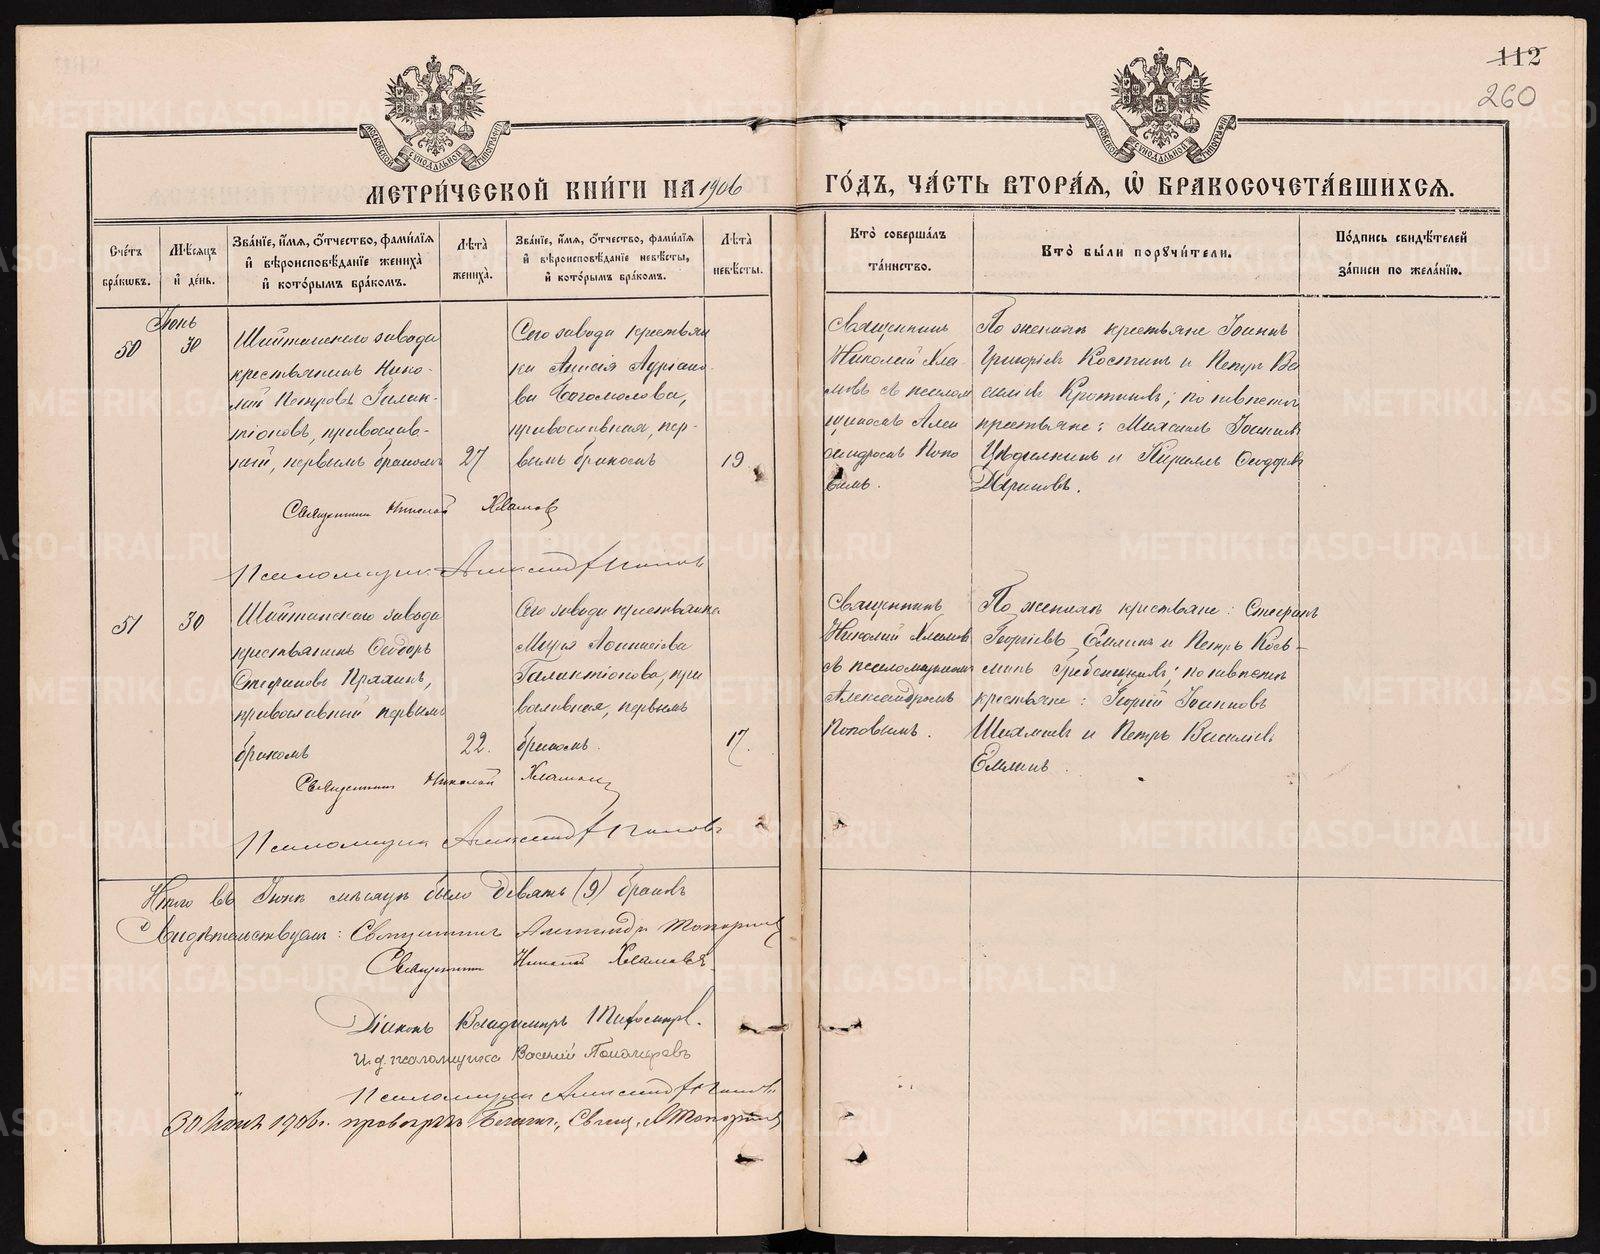 112
260
МЕТРИЧЕСКОЙ КНИГИ НА 1906 ГОДЪ, ЧАСТЬ ВТОРАЯ, Ѡ БРАКОСОЧЕТАВШИХСЯ.
МОСКОВСКОЙ СУНОДАЛЬНОЙ ТИПОГРАФІИ
МОСКОВСКОЙ СУНОДАЛЬНОЙ ТИПОГРАФІИ
Счетъ браковъ.
Мѣсяцъ и день.
Званіе, имя, отчество, фамилія
и вѣроисповѣданіе жениха
и которымъ бракомъ.
Лѣта жениха.
Званіе, имя, отчество, фамилія
и вѣроисповѣданіе невѣсты,
и которымъ бракомъ.
Лѣта невѣсты.
Кто совершалъ
таинство.
Кто были поручители.
Подпись свидѣтелей
записи по желанію.
Іюнь
50
30
Шайтанскаго завода
крестьянинъ Нико-
лай Петровъ Галак-
тіоновъ, православ-
ный, первымъ бракомъ
27
Сего завода крестьян
ка Анисія Адріано-
ва Богомолова,
православная, пер-
вымъ бракомъ
19
Священникъ
Николай Хла
мовъ съ псалом
щикомъ Алек
сандромъ Попо
вымъ.
По женихѣ крестьяне Іоаннъ
Григоріевъ Костинъ и Петръ Ва
силіевъ ; по невѣстѣ
крестьяне: Михаилъ Іоанновъ
и Кириллъ Ѳеодоровъ
Священникъ Николай Хламовъ
Псаломщикъ Александръ Поповъ
51
30
Шайтанскаго завода
крестьянинъ Ѳеодоръ
Стефановъ Пряхинъ,
православный первымъ
бракомъ
22.
Сего завода крестьянка
Марія
Галактіонова, пра
вославная, первымъ
бракомъ.
17.
Священникъ
Николай Хламовъ
съ псаломщикомъ
Александромъ
Поповымъ.
По женихѣ крестьяне: Стефанъ
Георгіевъ Емлинъ и Петръ Кось-
минъ Гребенщиковъ; по невѣстѣ
крестьяне: Георгій Іоанновъ
и Петръ Василіевъ
Емлинъ.
Священникъ Николай Хламовъ
Псаломщикъ Александръ Поповъ
Итого въ Іюнѣ мѣсяцѣ было девять (9) браковъ
Свидѣтельствуемъ: Священникъ Александръ Топорковъ
Священникъ Николай Хламовъ.
Діаконъ Владимиръ
И.д. псаломщика Василій Пономаревъ
Псаломщикъ Александръ Поповъ
30 Іюня 1906 г. Благоч., Свящ. А Топорковъ
METRIKI.GASO-URAL.RU